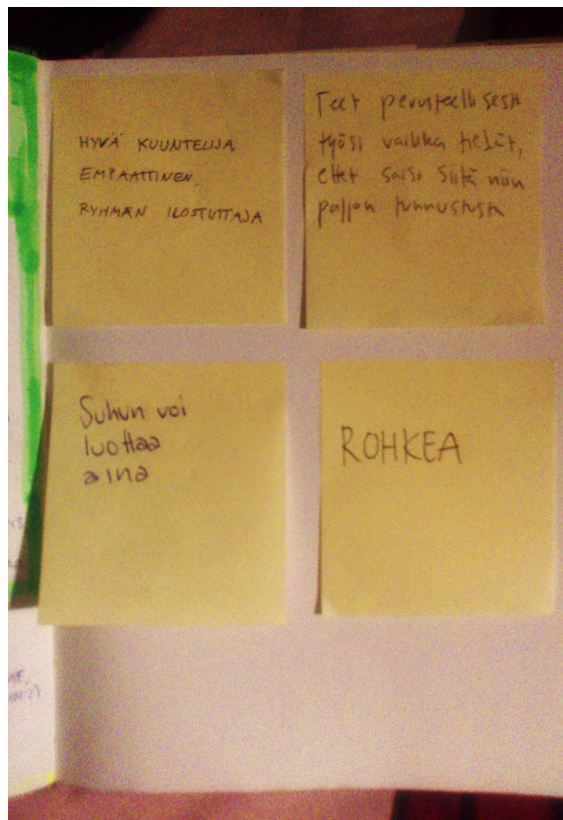 HYVÄ KUUNTELIJA
EMPAATTINEN
RYHMÄN ILOSTUTTAJA
Teet perusteellisesti
työsi vaikka tiedät,
ettet saisi siitä niin
paljon tunnustusta
Suhun voi
luottaa
aina
ROHKEA